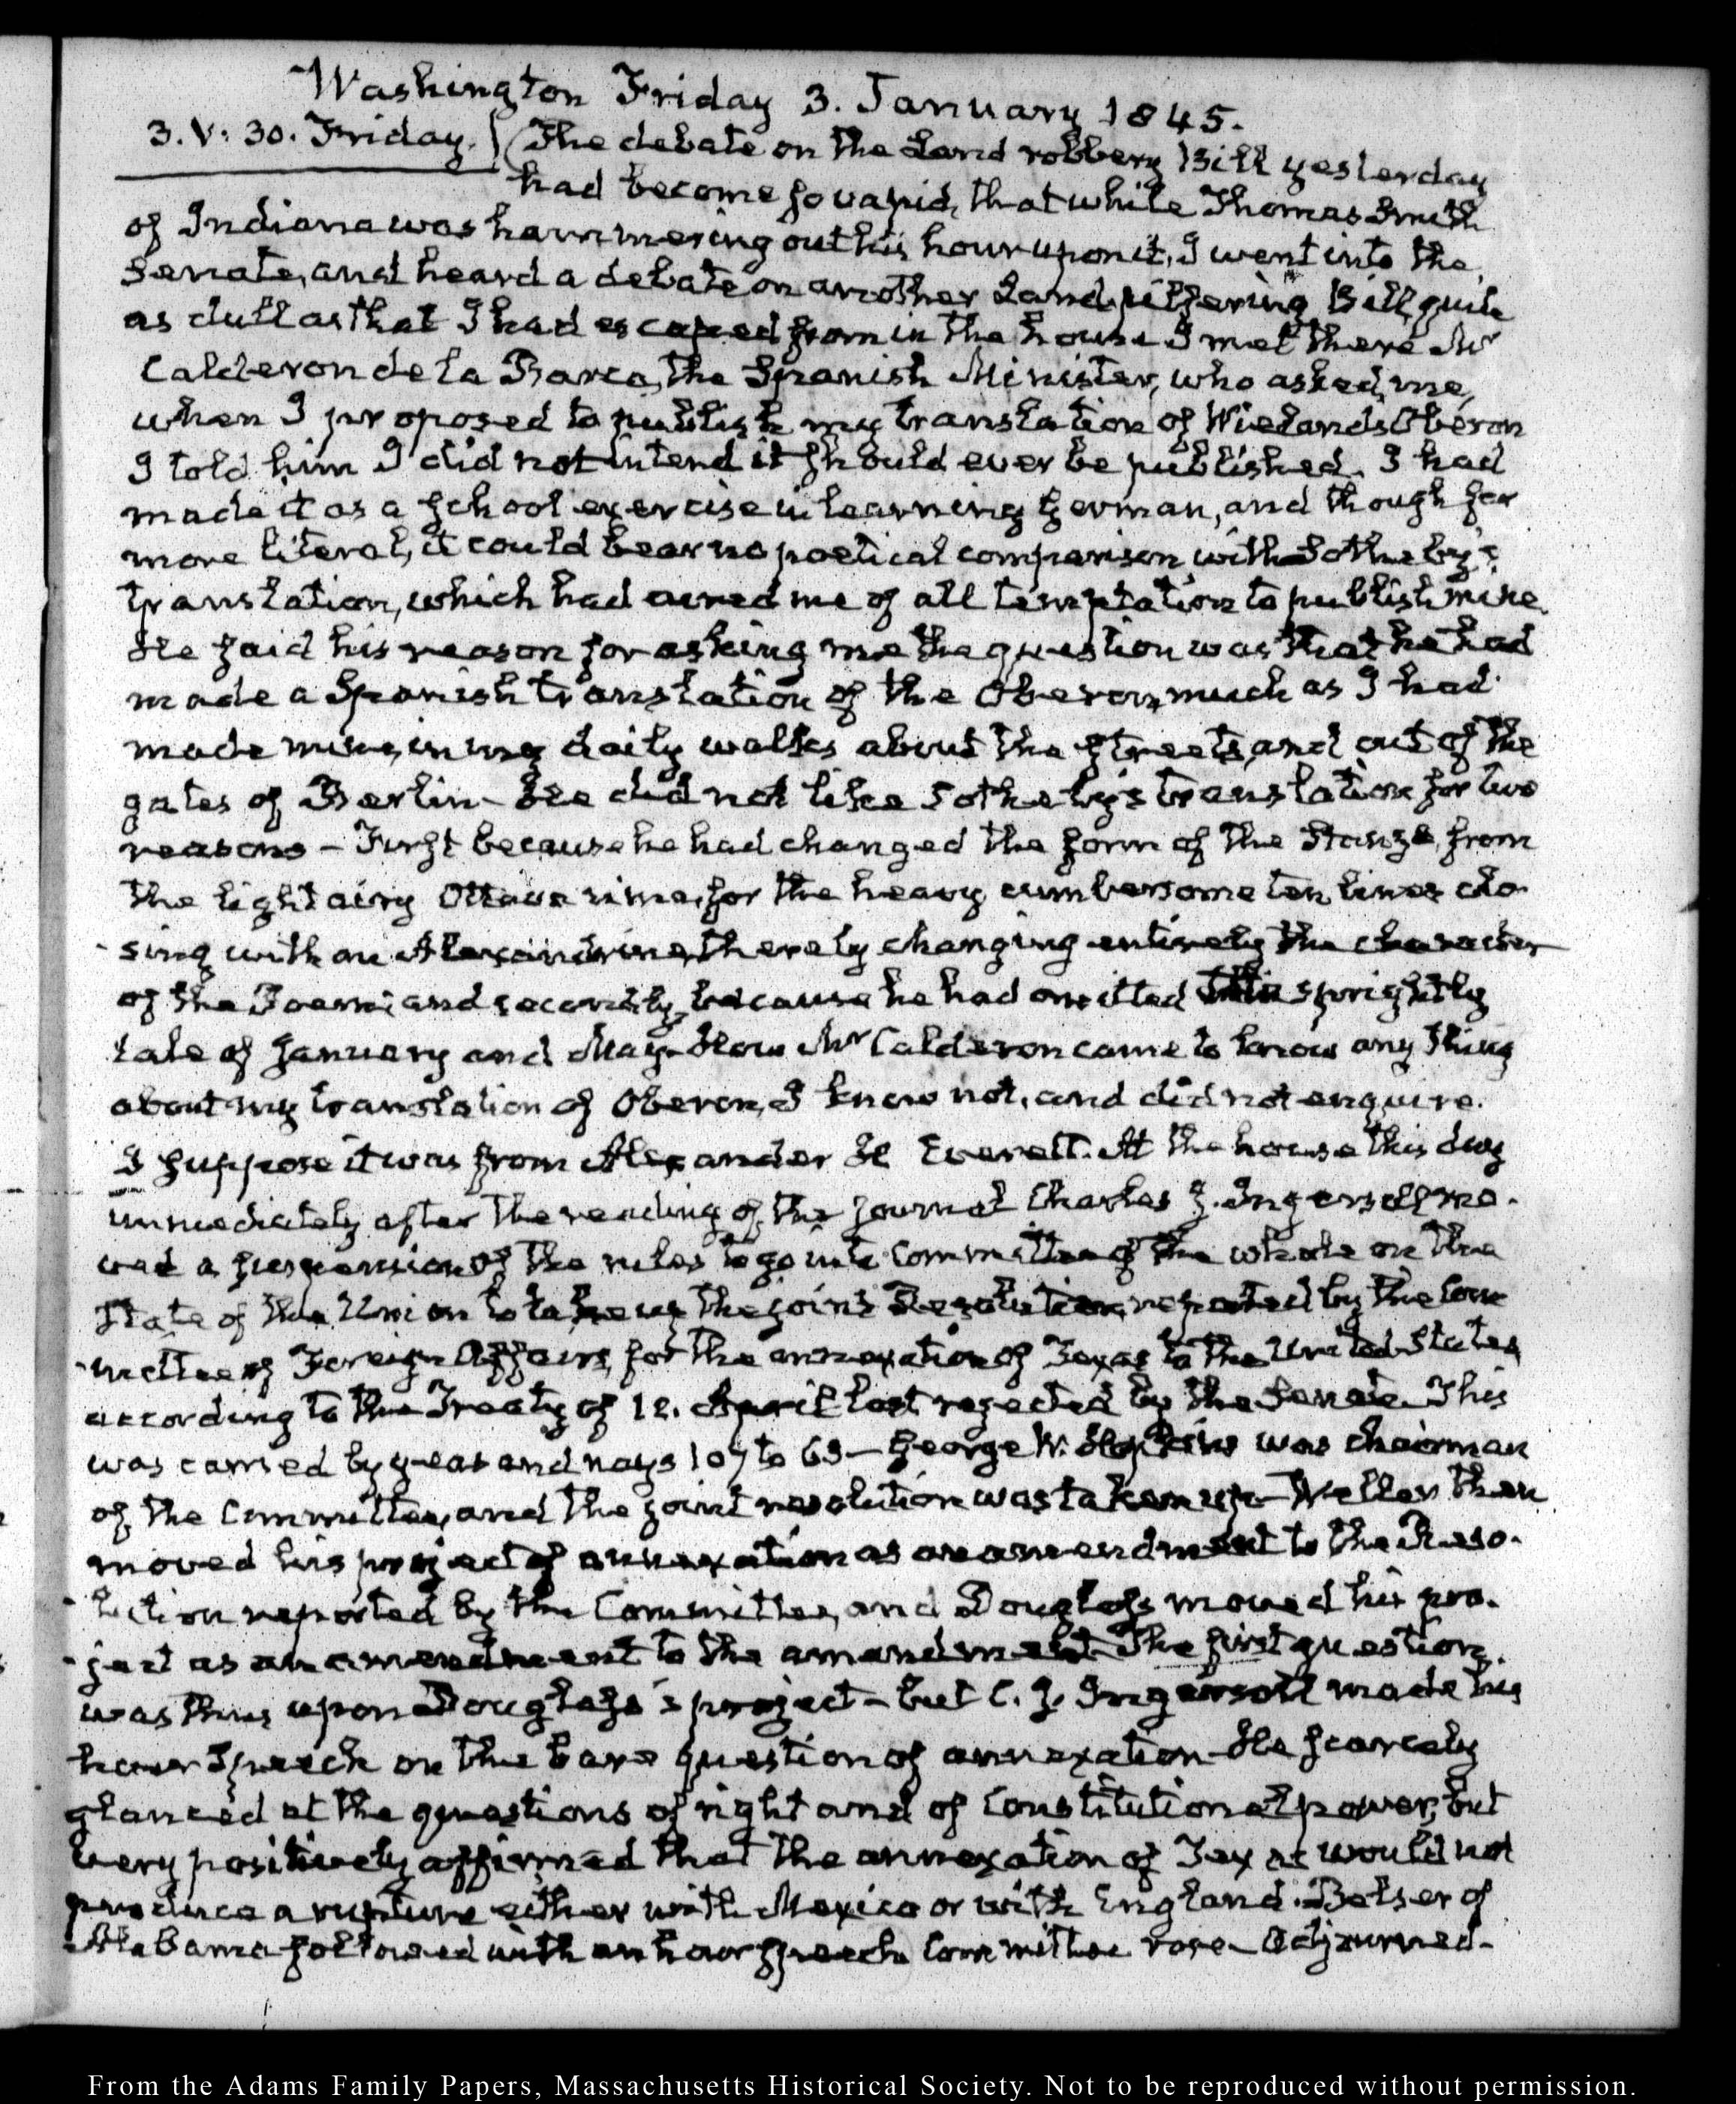 Washington Friday 3. January 1845.
3. V: 30. Friday. The debate on the Land robbery Bill yesterday
had become so vapid, that while Thomas Smith
of Indiana was hammering out his hour upon it, I went into the
Senate, and heard a debate on another Land pilfering Bill, quite
as dull as that I had escaped from in the house I met there Mr
Calderon de la Barca, the Spanish Minister, who asked me,
when I proposed to publish my translation of Wielands Oberon
I told him I did not intend it should ever be published. I had
made it as a school exercise in learning German, and though far
more literal, it could bear no poetical comparison with Sotheby's
translation, which had cured me of all temptation to publish mine.
He said his reason for asking me the question was that he had
made a Spanish translation of the Oberon, much as I had
made mine, in my daily walks about the streets, and out of the
gates of Berlin – He did not like Sotheby's translation for two
reasons – First because he had changed the form of the Stanza, from
the light airy Ottava rima, for the heavy cumbersome ten lines clo-
sing with an Alexandrine, thereby changing entirely the character
of the Poem; and secondly, because he had omitted the sprightly
tale of January and May – How Mr Calderon came to know any thing
about my translation of Oberon, I know not, and did not enquire.
I suppose it was from Alexander H Everett. At the house this day
immediately after the reading of the journal Charles J. Ingersoll mo-
ved a suspension of the rules to go into Committee of the whole on the
State of the Union to take up the joint Resolution, reported by the Com
mittee of Foreign Affairs, for the annexation of Texas to the United States
according to the Treaty of 12. April last rejected by the Senate. This
was carried by yeas and nays 109 to 63 – George W. Hopkins was chairman
of the Committee, and the joint resolution was taken up – Weller then
moved his project of annexation as an amendment to the Reso-
lution reported by the Committee, and Douglass moved his pro-
ject as an amendment to the amendment – The first question
was thus upon Douglass's project – but C. J. Ingersoll made his
hour Speech on the bare question of annexation – He scarcely
glanced at the questions of right and of Constitutional power, but
very positively affirmed that the annexation of Texas would not
produce a rupture either with Mexico or with England. Belser of
Alabama followed with an hour speech Committee rose – Adjourned –
From the Adams Family Papers, Massachusetts Historical Society. Not to be reproduced without permission.